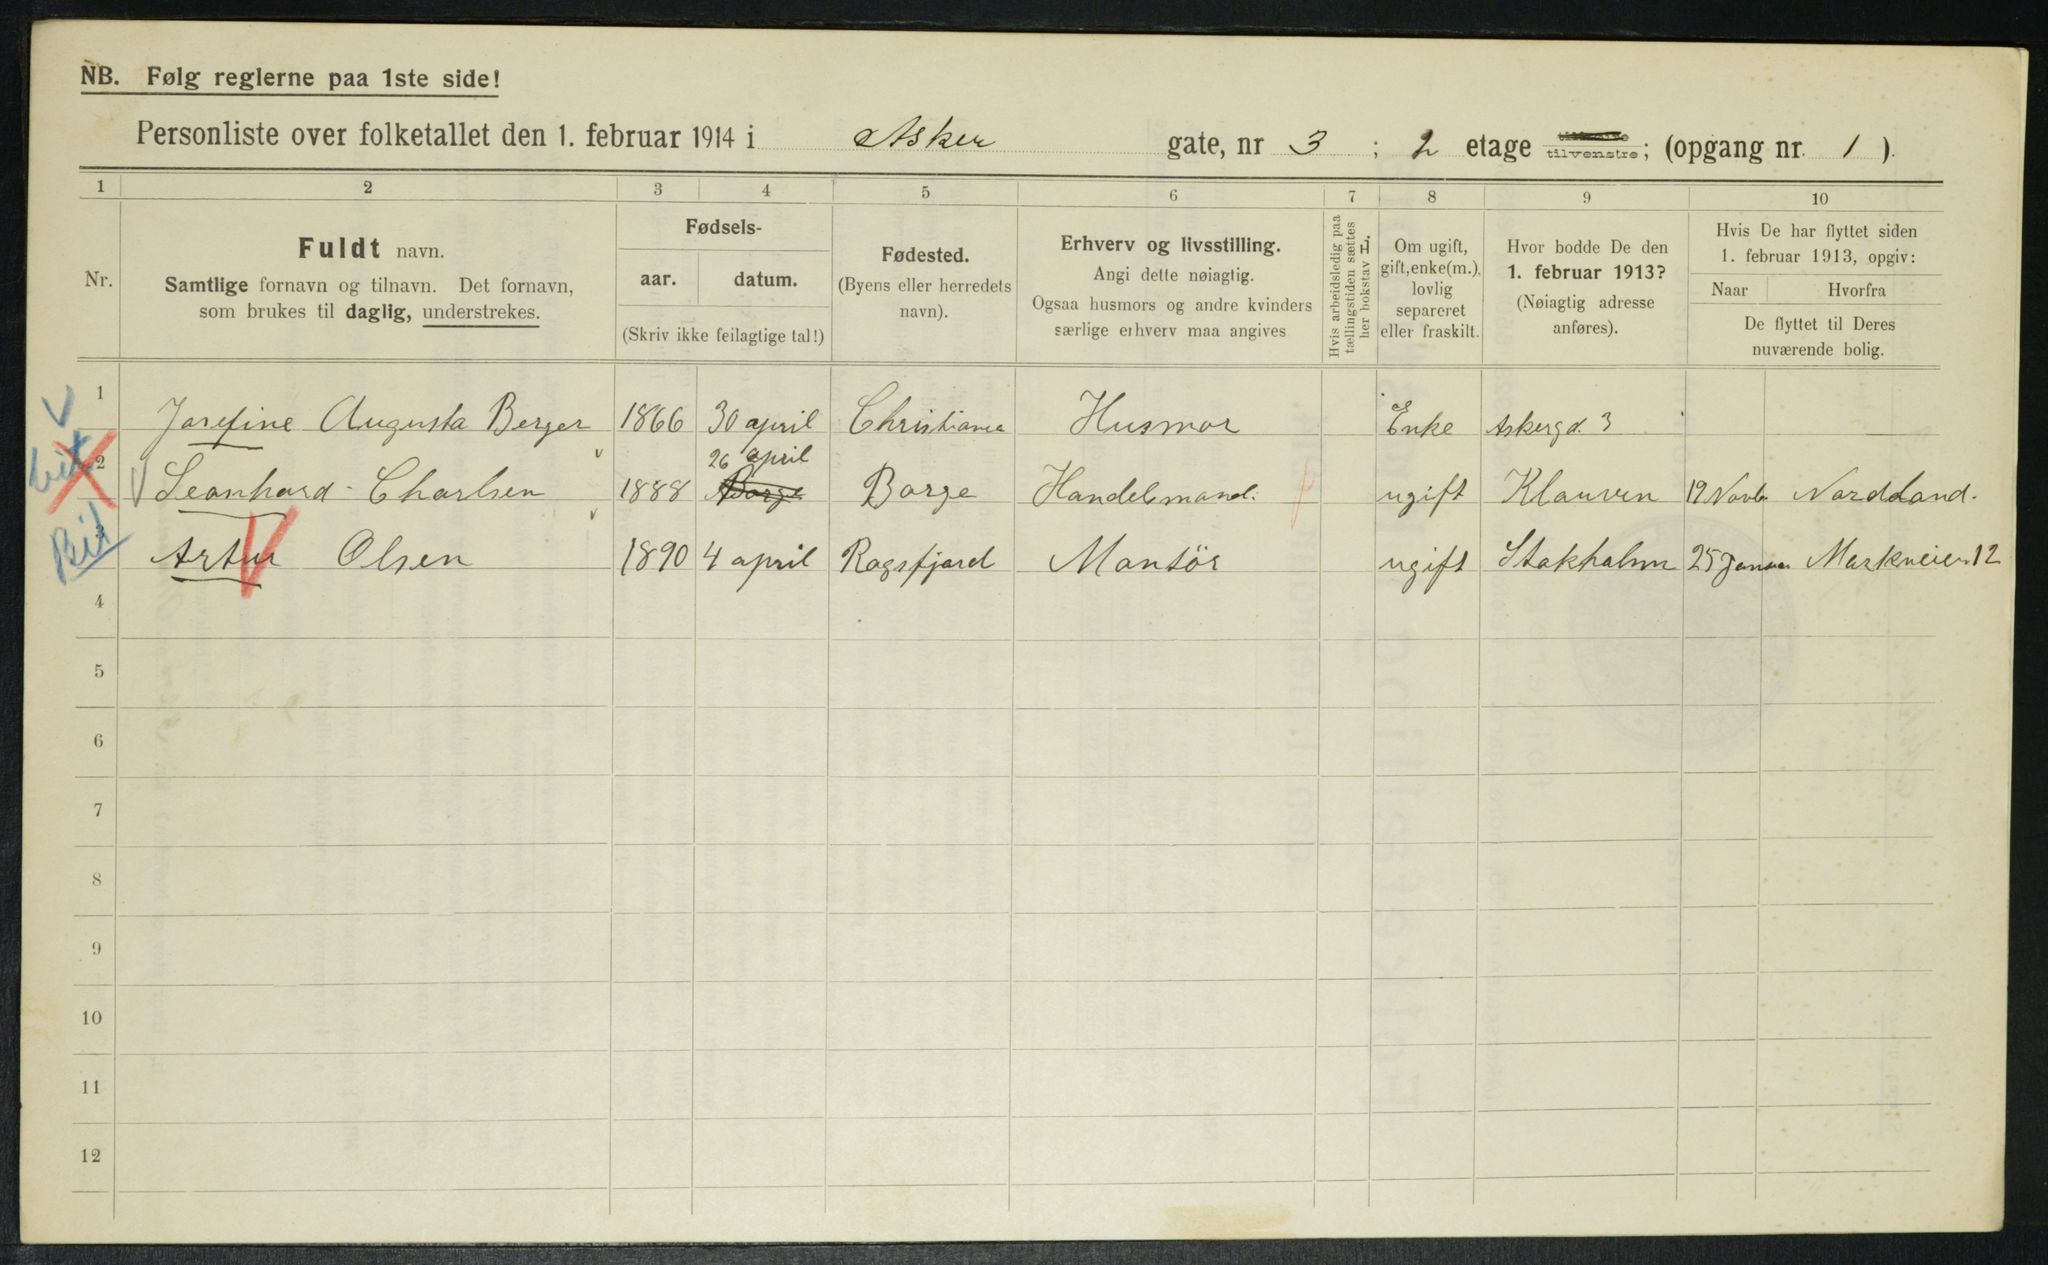 NB. Følg reglerne paa 1ste side!
Personliste over folketallet den 1. februar 1914 i Asker gate, nr 3 ; 2 etage tilvenstre; (opgang nr. 1 ).
1 2 3 4 5 6 7 8 9 10
Nr.
Fuldt navn.
Samtlige fornavn og tilnavn. Det fornavn,
som brukes til daglig, understrekes.
Fødsels-
aar. datum.
(Skriv ikke feilagtige tal!)
Fødested.
(Byens eller herredets
navn).
Erhverv og livsstilling.
Angi dette nøiagtig.
Ogsaa husmors og andre kvinders
særlige erhverv maa angives
Hvis arbeidsledig paa
tællingstiden sættes
her bokstav H.
Om ugift,
gift, enke(m.),
lovlig
separeret
eller fraskilt.
Hvor bodde De den
1. februar 1913?
(Nøiagtig adresse
anføres).
Hvis De har flyttet siden
1. februar 1913, opgiv:
Naar Hvorfra
De flyttet til Deres
nuværende bolig.
1 Josefine Augusta Berger 1866 30 april Christiania Husmor Enke Askergd. 3
26 april
2 Leonhard Charlsen 1888 Borge Borge Handelsmand. ugift Klauven 19 Novbr Nordland.
3 Artur Olsen 1890 4 april Rogsfjord Montør ugift Stokholm 25 Januar Markveien 12
4
5
6
7
8
9
10
11
12